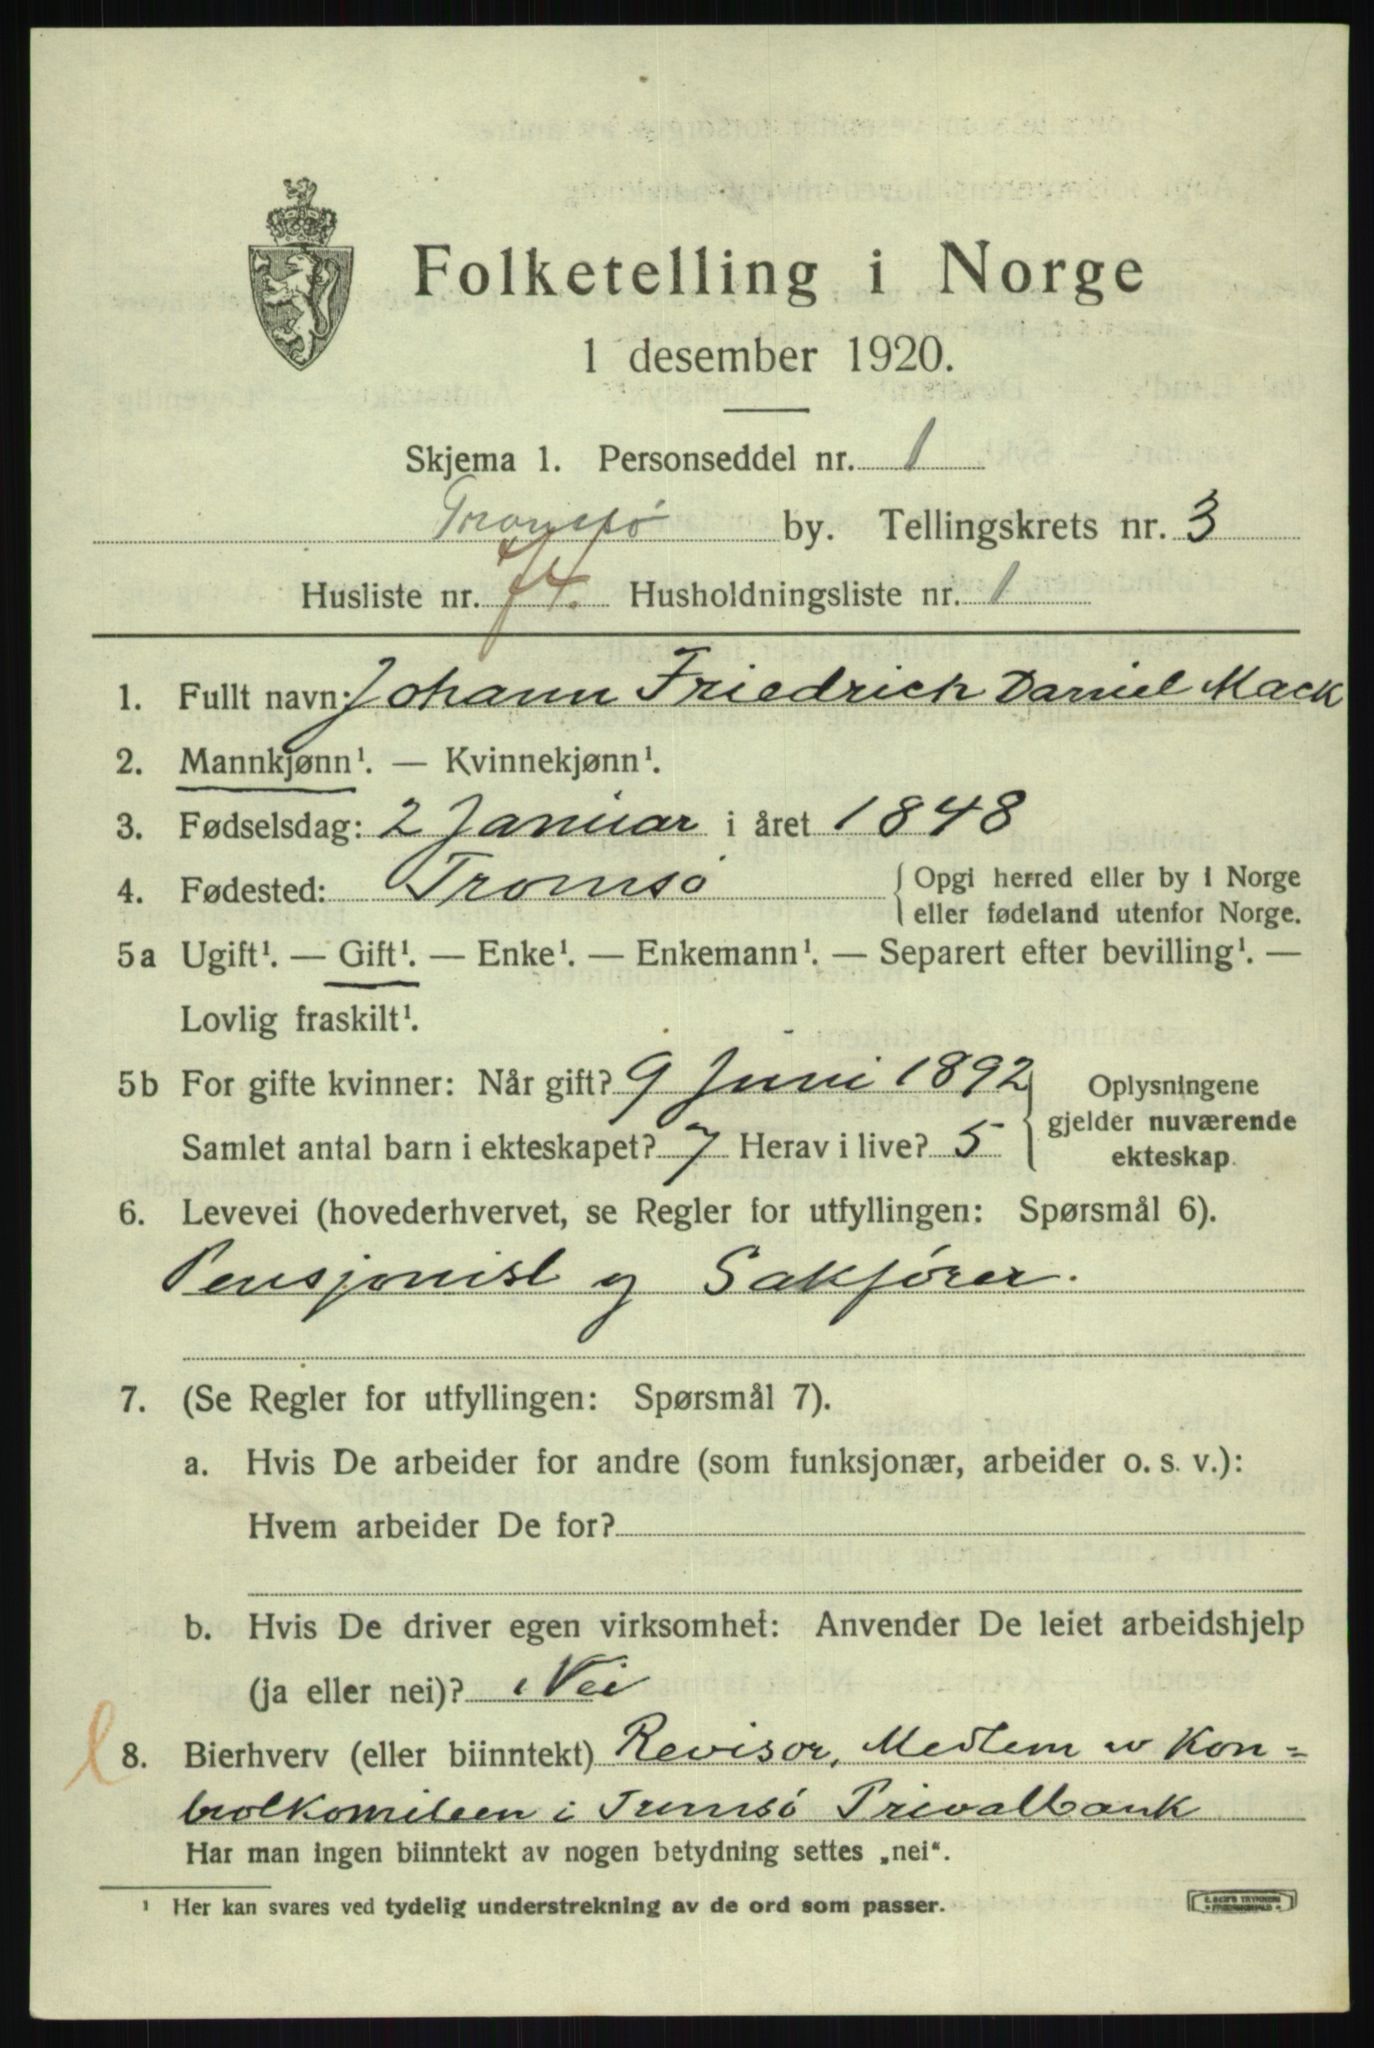 Folketelling i Norge
1 desember 1920.
Skjema 1. Personseddel nr. 1
Tromsø by. Tellingskrets nr. 3
Husliste nr. 74. Husholdningsliste nr. 1
1. Fullt navn: Johann Friedrich Daniel Mack
2. Mannkjønn¹. — Kvinnekjønn¹.
3. Fødselsdag: 2 Januar i året 1848
4. Fødested: Tromsø { Opgi herred eller by i Norge
eller fødeland utenfor Norge.
5a Ugift¹. — Gift¹. — Enke¹. — Enkemann¹. — Separert efter bevilling¹. —
Lovlig fraskilt¹.
5b For gifte kvinner: Når gift? 9 Juni 1892 } Oplysningene
gjelder nuværende
Samlet antal barn i ekteskapet? 7 Herav i live? 5 ekteskap.
6. Levevei (hovederhvervet, se Regler for utfyllingen: Spørsmål 6).
Pensjonist og Sakfører.
7. (Se Regler for utfyllingen: Spørsmål 7).
a. Hvis De arbeider for andre (som funksjonær, arbeider o. s. v.):
Hvem arbeider De for?
b. Hvis De driver egen virksomhet: Anvender De leiet arbeidshjelp
(ja eller nei)? Nei
8. Bierhverv (eller biinntekt) Revisor, Medlem av Kon=
trolkomiteen i Tromsø Privatbank
Har man ingen biinntekt av nogen betydning settes „nei“.
¹ Her kan svares ved tydelig understrekning av de ord som passer.